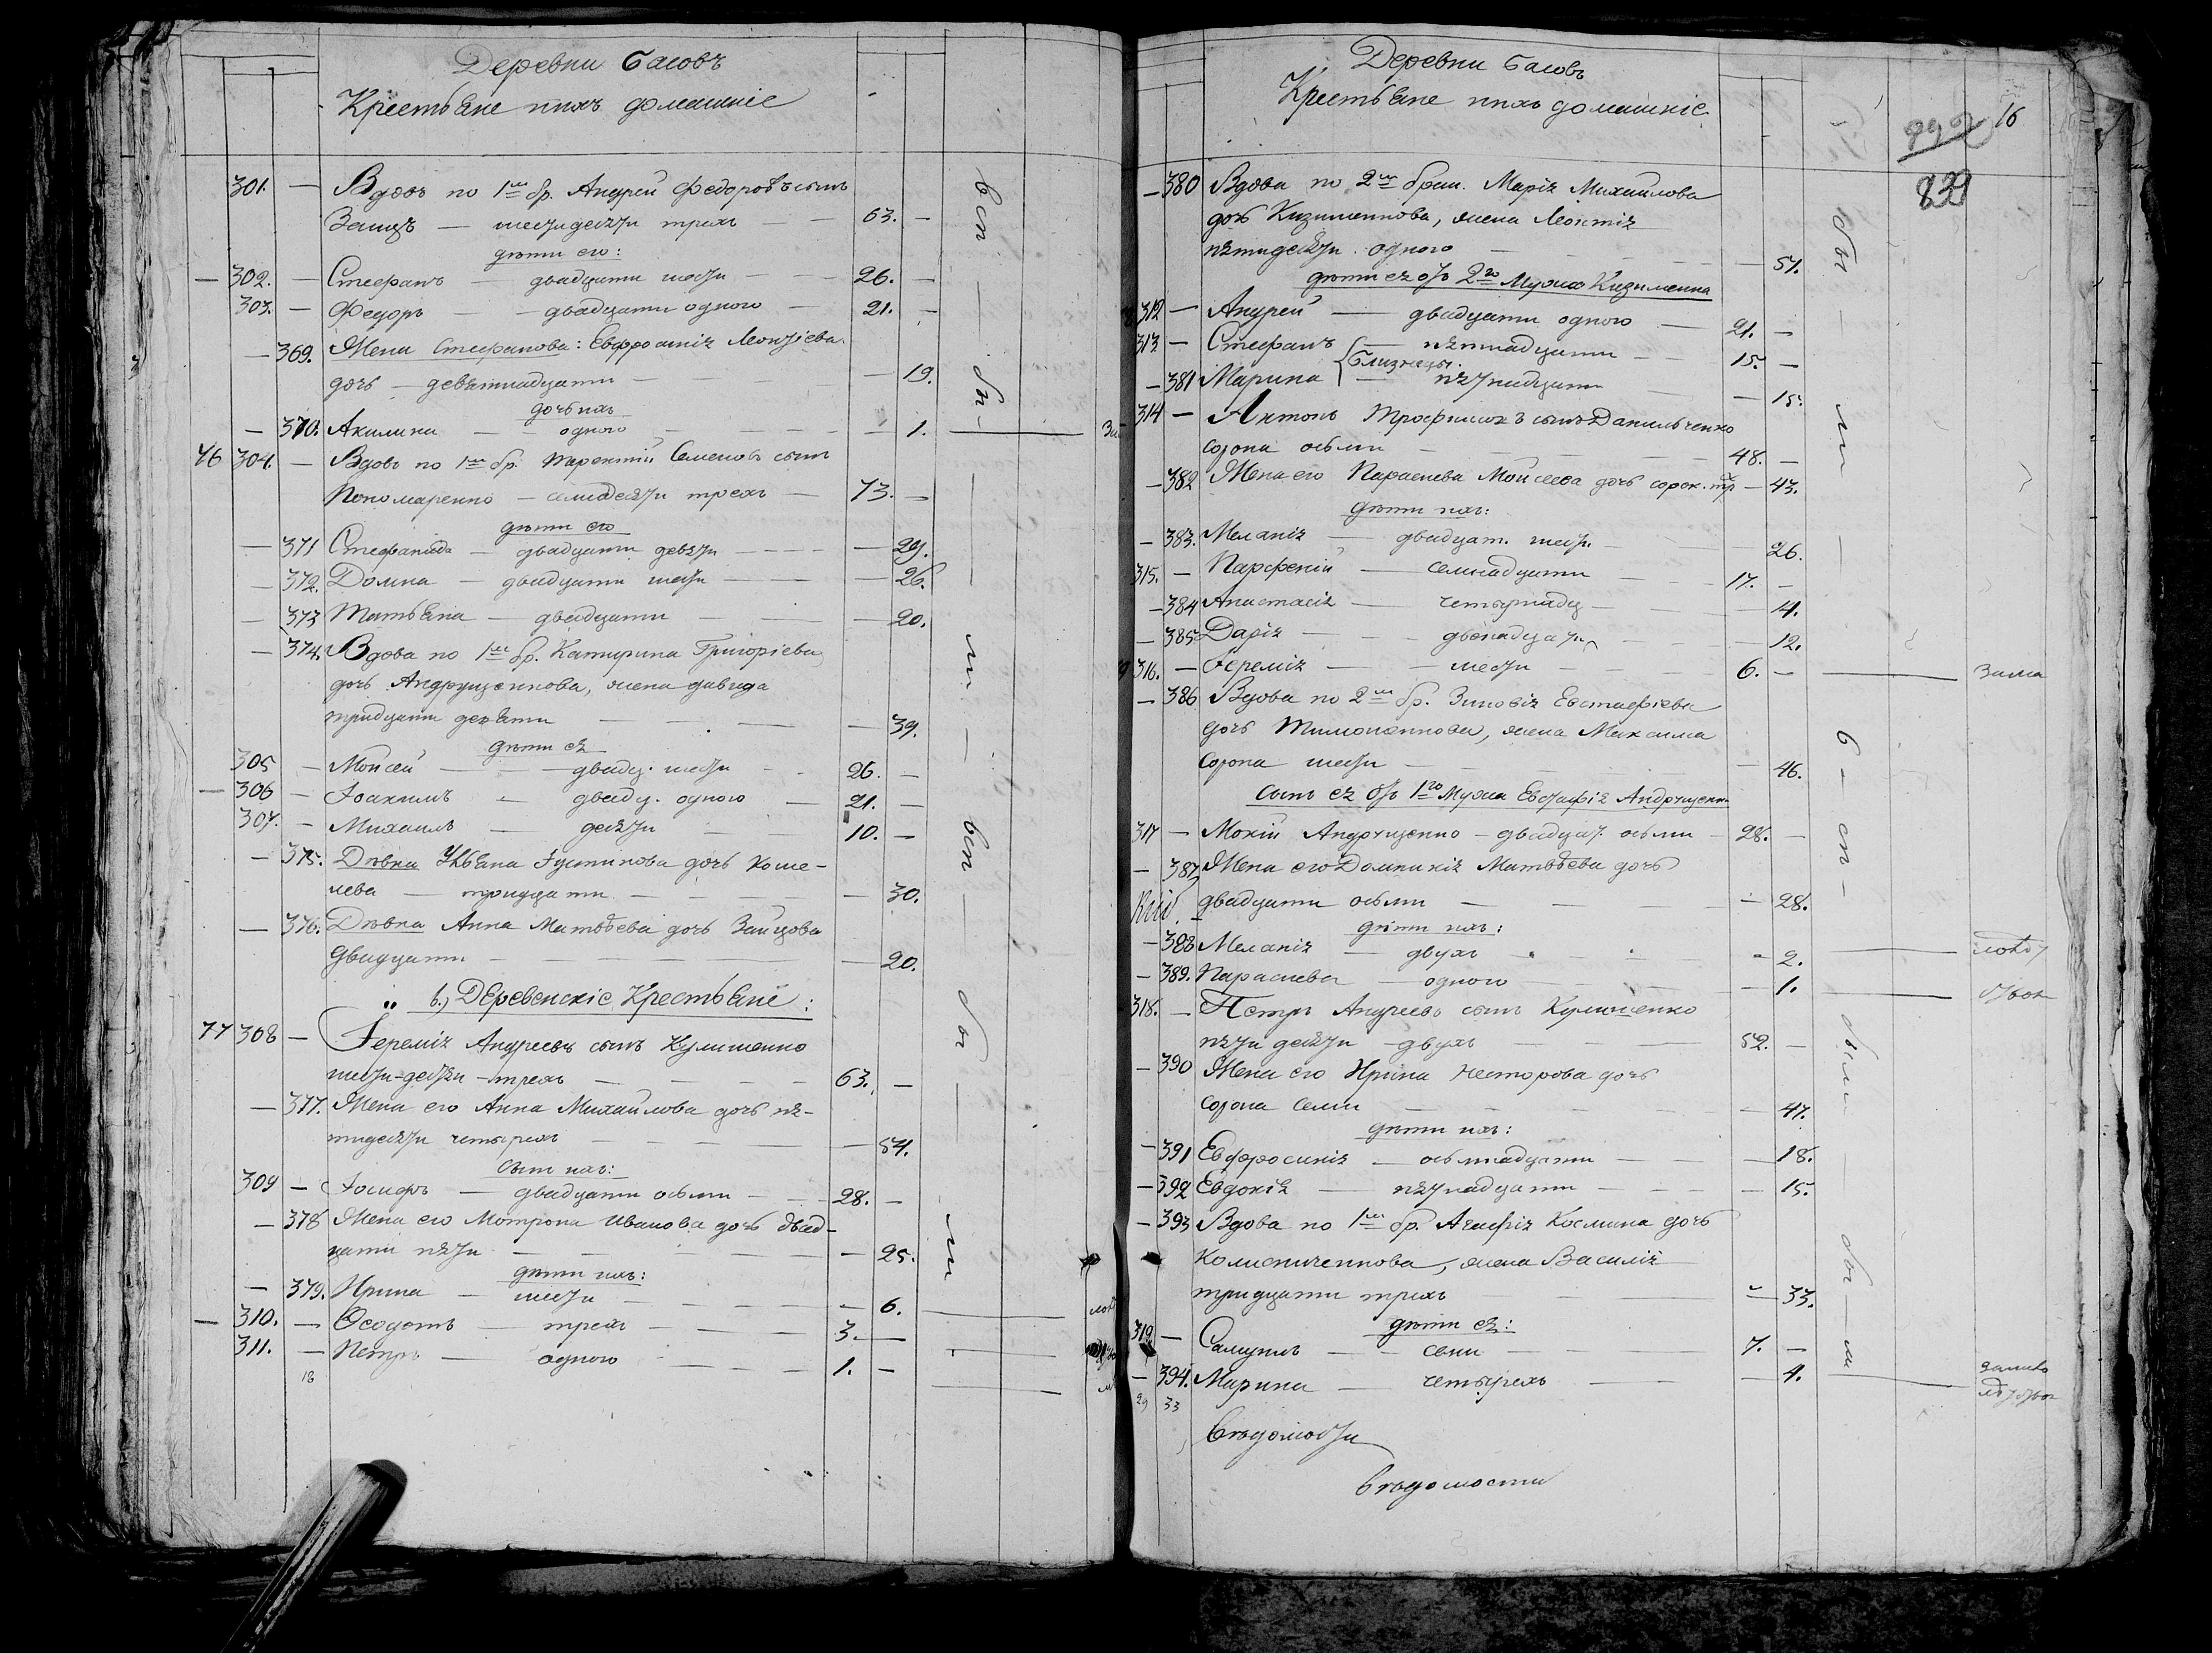 Деревни Басовъ
Крестьяне ихъ домашніе
301. — Вдовъ по 1му бр. Андрей Федоровъ сынъ
Заицъ — шестидесяти трехъ — 63. —
дѣти его:
— 302. — Стефанъ — двадцати шести — 26. —
303. — Федоръ — двадцати одного — 21. —
— 369. Жена Стефанова: Евфросинія Леонтіева
дочь — девятнадцати — 19.
дочь ихъ
— 370. Акилина — одного — 1.
76 304. — Вдовъ по 1му бр. Терентій Семеновъ сынъ
Пономаренко — семидесяти трехъ — 73. —
дѣти его
— 371 Стефанида — двадцати девяти — 29.
— 372. Домна — двадцати шести — 26.
— 373 Татьяна — двадцати — 20.
— 374. Вдова по 1му бр. Катирина Григоріева
дочь Андрущенкова, жена Давида
тридцати девяти — 39.
дѣти ея
305 — Моисей — двадц. шести — 26. —
— 306 — Іоакимъ — двадц. одного — 21. —
307. — Михаилъ — десяти — 10. —
— 375. Дѣвка Ульяна Іустинова дочь Коше-
лева — тридцати — 30.
— 376. Дѣвка Анна Матвѣева дочь Заицова
двадцати — 20.
в.) Деревенскіе Крестьяне:
77 308 — Іеремія Андреевъ сынъ Кулишенко
шести-десяти-трехъ — 63. —
— 377. Жена его Анна Михайлова дочь пя-
тидесяти четырехъ — 54.
Сынъ ихъ:
309 — Іосифъ — двадцати осьми — 28. —
— 378 Жена его Мотрона Иванова дочь двад-
цати пяти — 25.
дѣти ихъ:
— 379. Ирина — шести — 6.
— 310. — Ѳеодотъ — трехъ — 3. —
311. — Петръ — одного — 1. —
18
всѣ — бы — ли — всѣ — бы — ли
Деревни Басовъ
Крестьяне ихъ домашніе
16
792
839
— 380 Вдова по 2му брак. Марія Михайлова
дочь Кизименкова, жена Леонтія
пятидесяти одного — 51.
дѣти ея отъ 2го Мужа Кизименка
312 — Андрей — двадцати одного — 21. —
313 — Стефанъ — пятнадцати — 15. —
Близнецы.
— 381 Марина — пятнадцати — 15.
314 — Антонъ Трофимовъ сынъ Данильченко
сорока осьми — 48. —
— 382 Жена его Параскева Моисеева дочь сорок. тр — 43.
дѣти ихъ:
— 383. Меланія — двадцат. шести — 26.
315. — Парфеній — семнадцати — 17. —
— 384 Анастасія — четырнадц — 14.
— 385 Дарія — двенадцати — 12.
316. — Іеремія — шести — 6. —
— 386 Вдова по 2му бр. Зиновія Евстафіева
дочь Тимошенкова, жена Максима
сорока шести — 46.
сынъ ея отъ 1го Мужа Евстафія Андрущенк
317 — Мокій Андрущенко — двадцат. осьми — 28. —
— 387 Жена его Домникія Матвѣева дочь
двадцати осьми — 28.
дѣти ихъ:
— 388 Меланія — двухъ — 2.
— 389. Параскева — одного — 1.
318. — Петръ Андреевъ сынъ Кулишенко
пяти десяти — двухъ — 52. —
— 390 Жена его Ирина Несторова дочь
сорока семи — 47.
дѣти ихъ:
— 391 Евфросинія — осьмнадцати — 18.
— 392 Евдокія — пятнадцати — 15.
— 393 Вдова по 1му бр. Агафія Космина дочь
Колисниченкова, жена Василія
тридцати трехъ — 33.
дѣти ея:
319 — Самуилъ — семи — 7. —
— 394. Марина — четырехъ — 4.
29 33
бы — ли — в — сѣ — были — бы — ли
Вѣдомости
вѣдомости